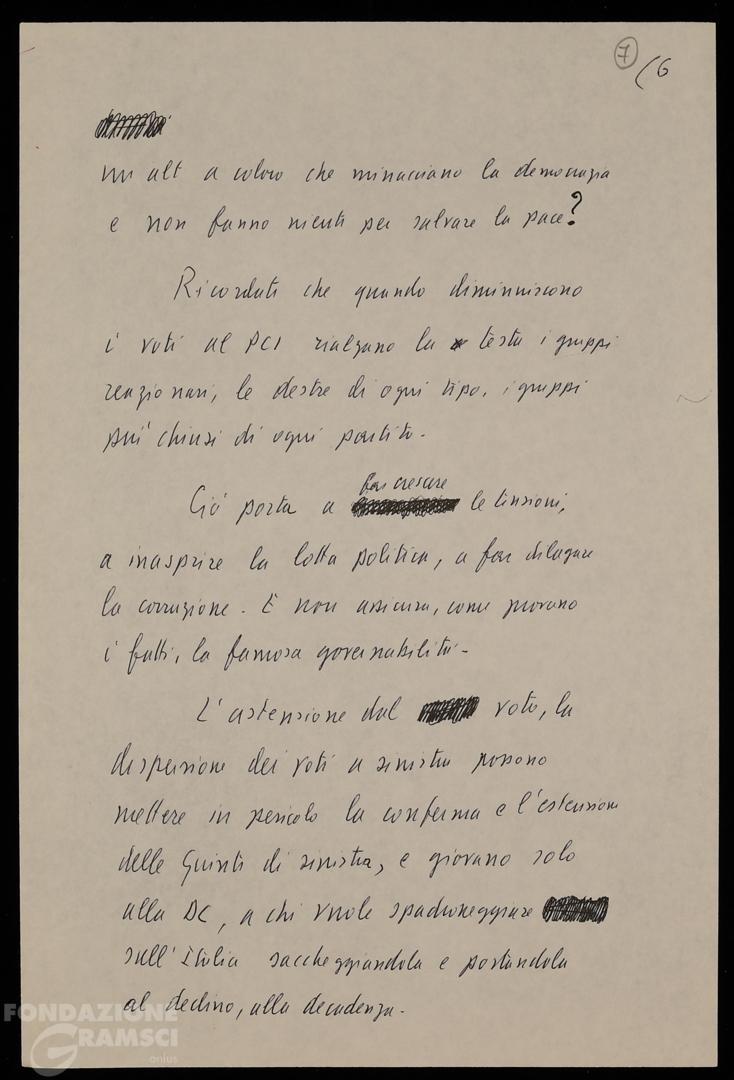 7 (6
un alt a coloro che minacciano la democrazia
e non fanno niente per salvare la pace?
Ricordati che quando diminuiscono
i voti al PCI rialzano la testa i gruppi
reazionari, le destre di ogni tipo, i gruppi
più chiusi di ogni partito.
Ciò porta a far crescere le tensioni,
a inasprire la lotta politica, a far dilagare
la corruzione. E non assicura, come provano
i fatti, la famosa governabilità.
L'astensione dal voto, la
dispersione dei voti a sinistra possono
mettere in pericolo la conferma e l'estensione
delle Giunte di sinistra, e giovano solo
alla DC, a chi vuole spadroneggiare
sull'Italia saccheggiandola e portandola
al declino, alla decadenza.
FONDAZIONE
GRAMSCI
onlus